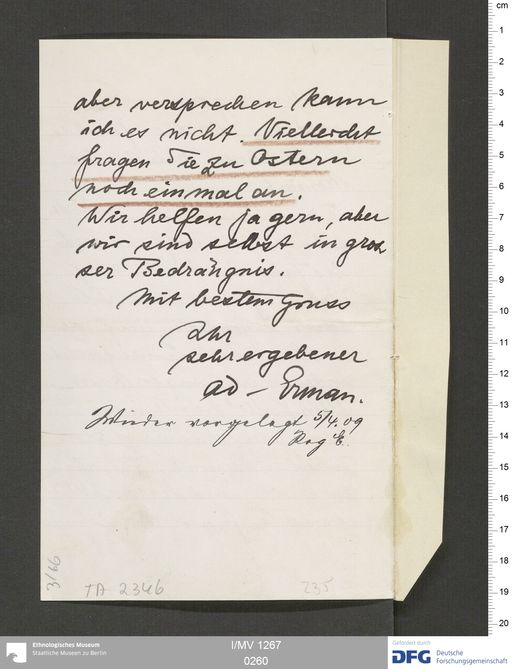 aber versprechen kann
ich es nicht. Vielleicht
fragen Sie zu Ostern
noch einmal an.
Wir helfen ja gern, aber
wir sind selbst in gros
ser Bedrängnis.
Mit bestem Gruss
Ihr
sehr ergebener
Ad – Erman.
Wieder vorgelegt 5/4.09
Reg E.
3/66
TA 2346
235
cm
1
2
3
4
5
6
7
8
9
10
11
12
13
14
15
16
17
18
19
20
Ethnologisches Museum
Staatliche Museen zu Berlin
I/MV 1267
0260
Gefördert durch
DFG Deutsche
Forschungsgemeinschaft